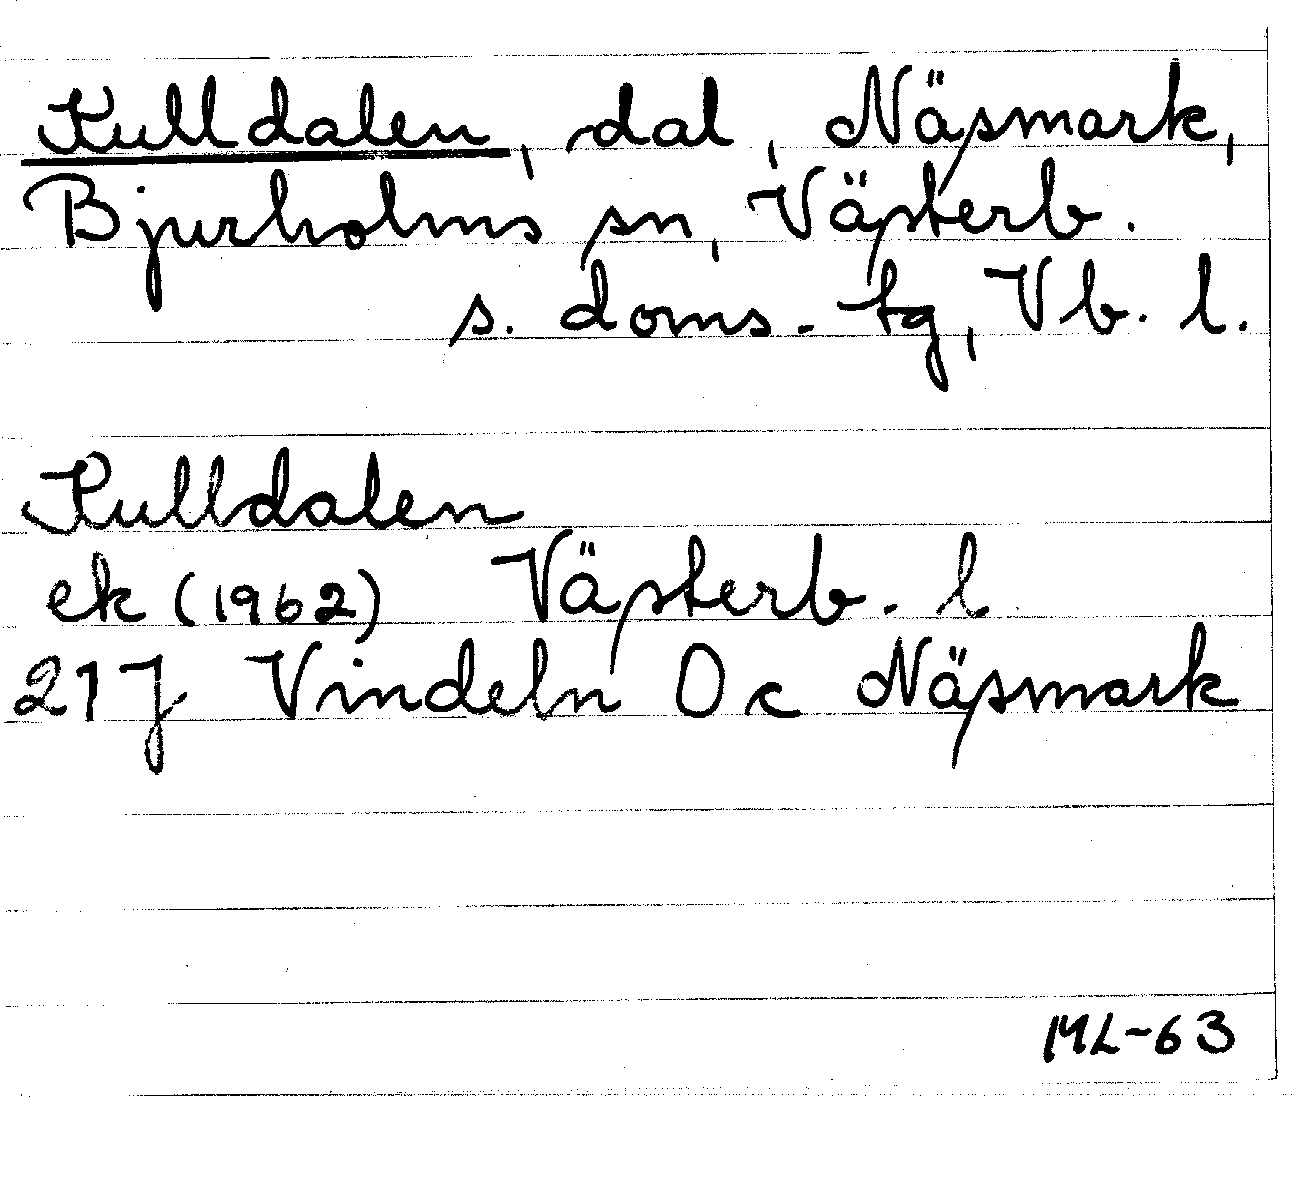 Kulldalen, dal, Näsmark,
Bjurholms sn, Västerb.
s. doms.-tg, Vb. l.
Kulldalen
ek (1962) Västerb. l.
21J Vindeln 0c Näsmark
ML-63